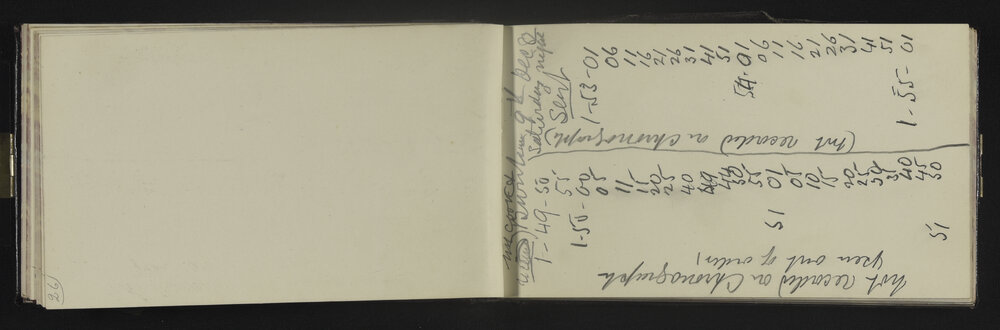 26
9th Dec
Saturday night
Sent
1-49-50
55
1-50-00
05
11
15
20
25
40
49
44
50
55
51 01
05
10
15
20
25
30
35
40
45
51 50
not recorded on Chronograph
pen out of order
(not recorded on Chronograph)
1-53-01
06
11
16
21
26
31
41
51
54-01
06
11
16
21
26
31
41
51
1-55-01